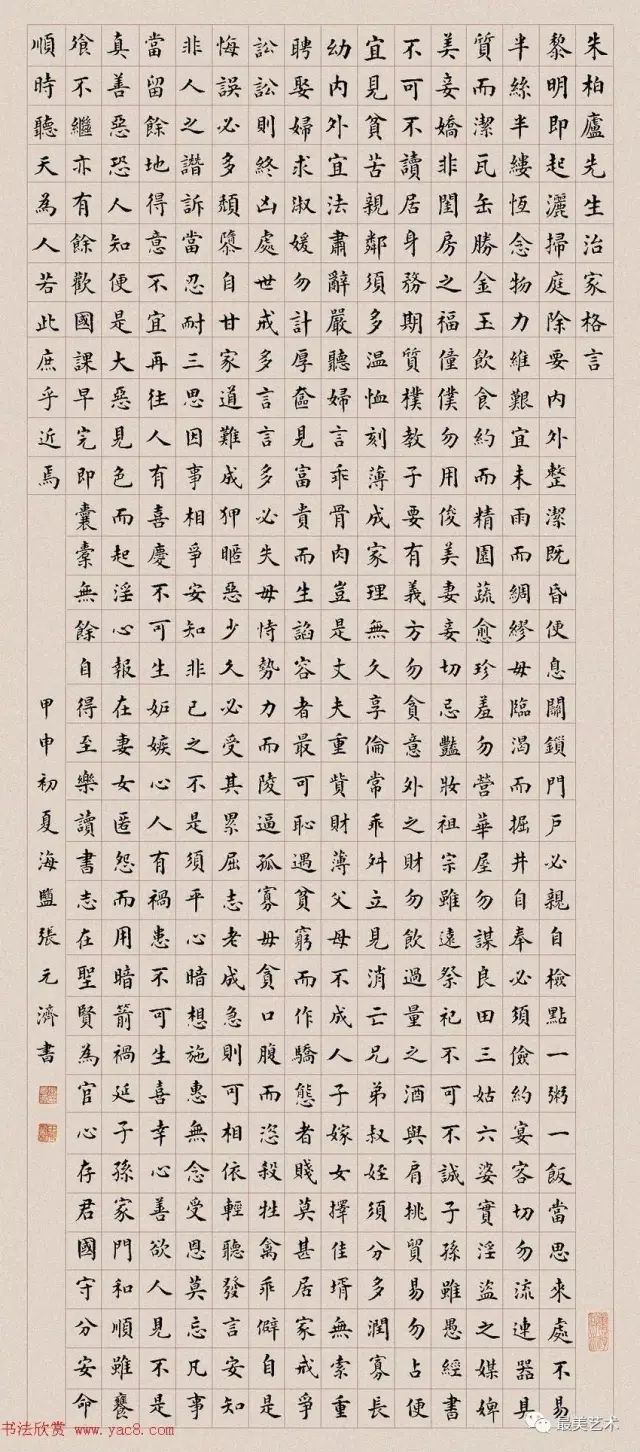 朱柏廬先生治家格言
黎明即起灑掃庭除要內外整潔既昏便息關鎖門戶必親自檢點一粥一飯當思來處不易
半絲半縷恆念物力維艱宜未雨而綢繆毋臨渴而掘井自奉必須儉約宴客切勿流連器具
質而潔瓦缶勝金玉飲食約而精園蔬愈珍羞勿營華屋勿謀良田三姑六婆實淫盜之媒婢
美妾嬌非閨房之福僮僕勿用俊美妻妾切忌豔妝祖宗雖遠祭祀不可不誠子孫雖愚經書
不可不讀居身務期質樸教子要有義方勿貪意外之財勿飲過量之酒與肩挑貿易勿占便
宜見貧苦親鄰須多溫恤刻薄成家理無久享倫常乖舛立見消亡兄弟叔姪須分多潤寡長
幼內外宜法肅辭嚴聽婦言乖骨肉豈是丈夫重貲財薄父母不成人子嫁女擇佳壻無索重
聘娶婦求淑媛勿計厚奩見富貴而生諂容者最可恥遇貧窮而作驕態者賤莫甚居家戒爭
訟訟則終凶處世戒多言言多必失毋恃勢力而陵逼孤寡毋貪口腹而恣殺牲禽乖僻自是
悔誤必多頹隳自甘家道難成狎暱惡少久必受其累屈志老成急則可相依輕聽發言安知
非人之譖訴當忍耐三思因事相爭安知非己之不是須平心暗想施惠無念受恩莫忘凡事
當留餘地得意不宜再往人有喜慶不可生妬嫉心人有禍患不可生喜幸心善欲人見不是
真善惡恐人知便是大惡見色而起淫心報在妻女匿怨而用暗箭禍延子孫家門和順雖饔
飧不繼亦有餘歡國課早完即囊橐無餘自得至樂讀書志在聖賢為官心存君國守分安命
順時聽天為人若此庶乎近焉
甲申初夏海鹽張元濟書
书法欣赏 www.yac8.com
最美艺术